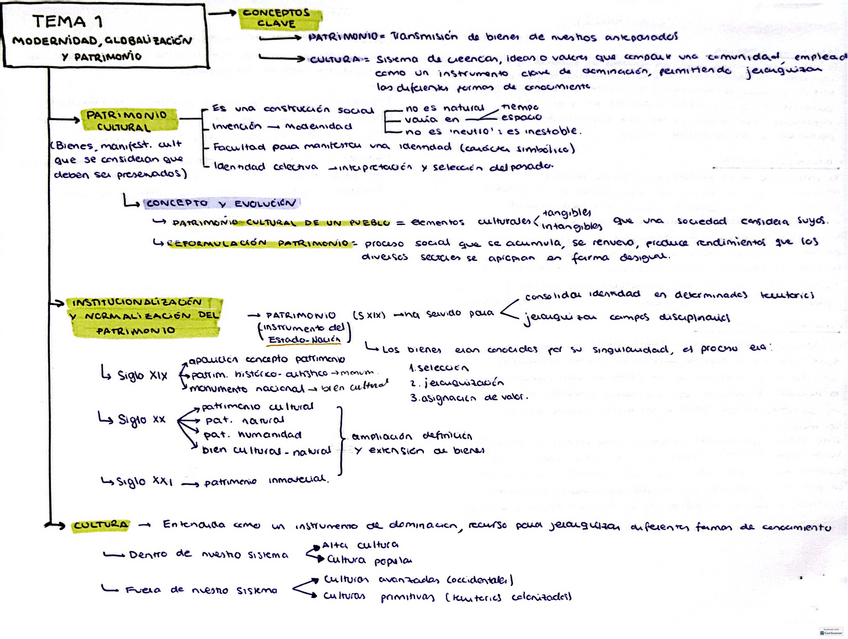 TEMA 1
MODERNIDAD, GLOBALIZACIÓN
Y PATRIMONIO
CONCEPTOS
CLAVE
PATRIMONIO = Transmisión de bienes de nuestros antepasados
CULTURA = Sistema de creencias, ideas o valores que comparte una comunidad, emplead
como un instrumento clave de dominación, permitiendo jerarquizar
las diferentes formas de conocimiento.
PATRIMONIO
CULTURAL
(Bienes, manifest. cult
que se consideran que
deben ser preservados)
Es una construcción social
no es natural
varía en
tiempo
espacio
no es 'neutro': es inestable.
Invención → modernidad
Facultad para manifestar una identidad (carácter simbólico)
Identidad colectiva → interpretación y selección del pasado.
CONCEPTO Y EVOLUCIÓN
PATRIMONIO CULTURAL DE UN PUEBLO = elementos culturales
tangibles
intangibles
que una sociedad considera suyos.
REFORMULACIÓN PATRIMONIO = proceso social que se acumula, se renueva, produce rendimientos que los
diversos sectores se apropian en forma desigual.
INSTITUCIONALIZACIÓN
Y NORMALIZACIÓN DEL
PATRIMONIO
→ PATRIMONIO (S XIX) → ha servido para
(instrumento del
Estado-Nación)
consolidar identidad en determinados territorios
jerarquizar campos disciplinarios
Los bienes eran conocidos por su singularidad, el proceso era:
1. selección
2. jerarquización
3. asignación de valor.
Siglo XIX
aparición concepto patrimonio
patrim. histórico-artístico → monum.
monumento nacional → bien cultural
Siglo XX
patrimonio cultural
pat. natural
pat. humanidad
bien cultural-natural
ampliación definición
y extensión de bienes
Siglo XXI → patrimonio inmaterial.
CULTURA → Entendida como un instrumento de dominación, recurso para jerarquizar diferentes formas de conocimiento
Dentro de nuestro sistema
Alta cultura
Cultura popular
Fuera de nuestro sistema
Culturas avanzadas (occidentales)
Culturas primitivas (territorios colonizados)